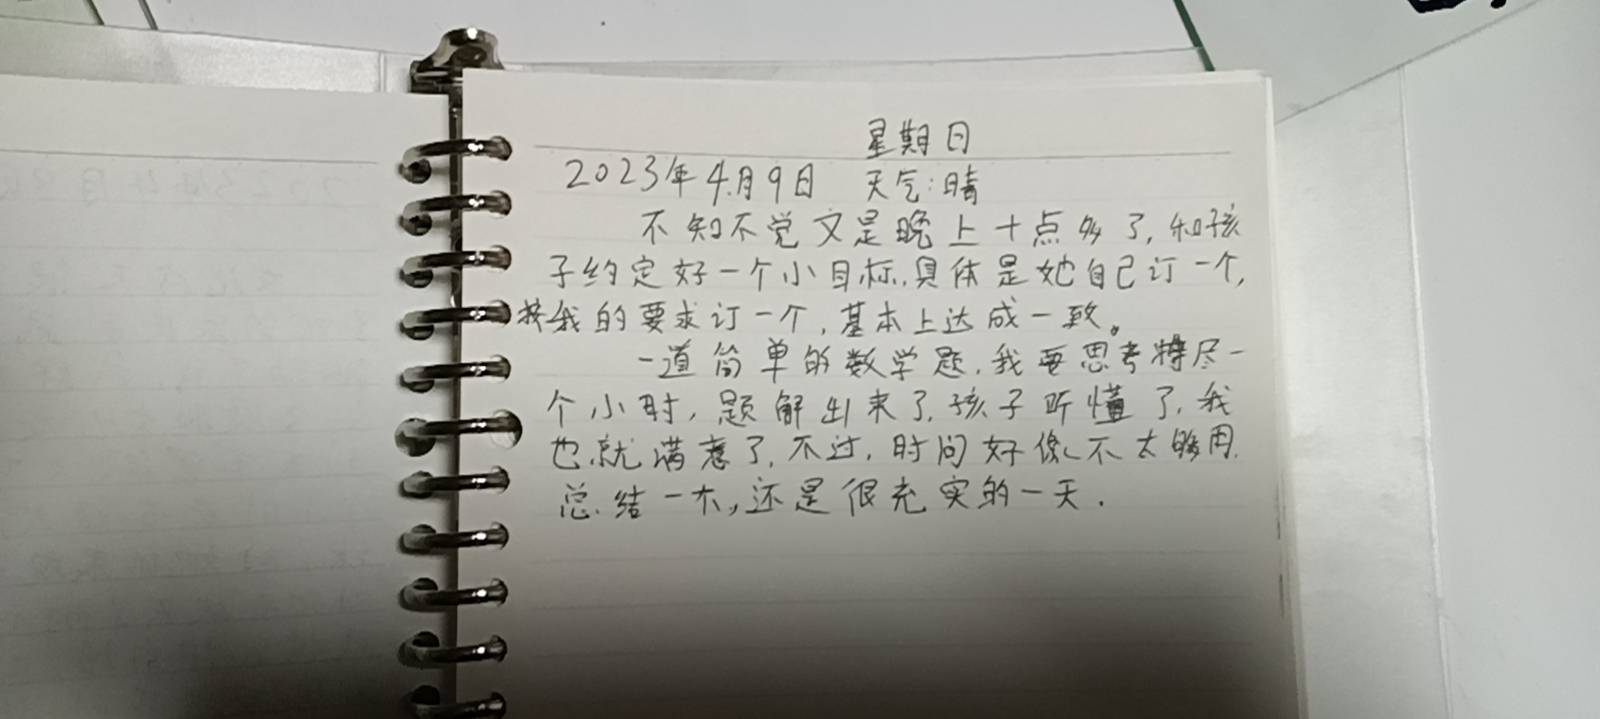 星期日
2023年4月9日 天气:晴
不知不觉又是晚上十点多了,和孩
子约定好一个小目标,具体是她自己订一个,
按我的要求订一个,基本上达成一致。
一道简单的数学题,我要思考将尽一
个小时,题解出来了,孩子听懂了,我
也就满意了,不过,时间好像不太够用,
总结一下,还是很充实的一天.